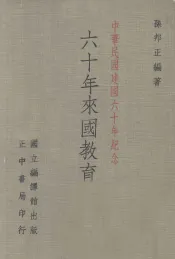 孫邦正編著
中華民國建國六十年紀念
六十年來國教育
國立編譯館出版
正中書局印行